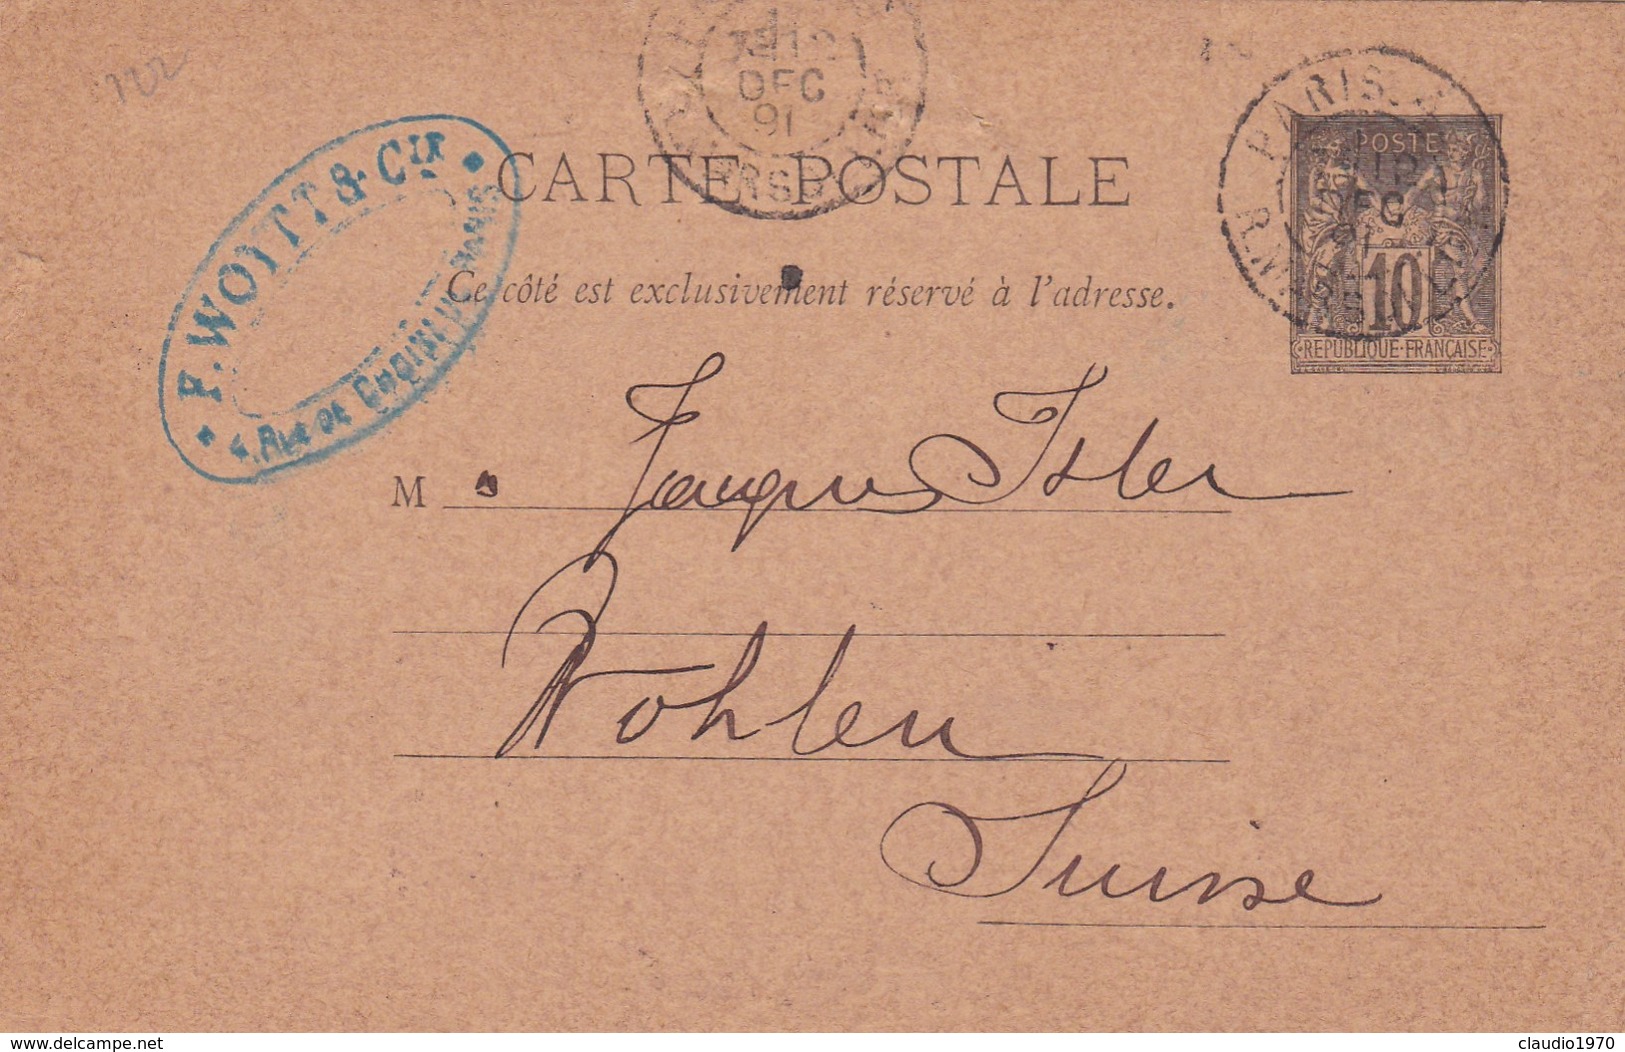 122
7E 12
DEC
91
PARIS
12
91
F. WOYTT & CIE
4. RUE DE CHOISEUL PARIS
CARTE POSTALE
POSTE
10
REPUBLIQUE·FRANÇAISE
Ce côté est exclusivement réservé à l'adresse.
M. Jacques Isler
Wohlen
Suisse
delcampe.net
claudio1970